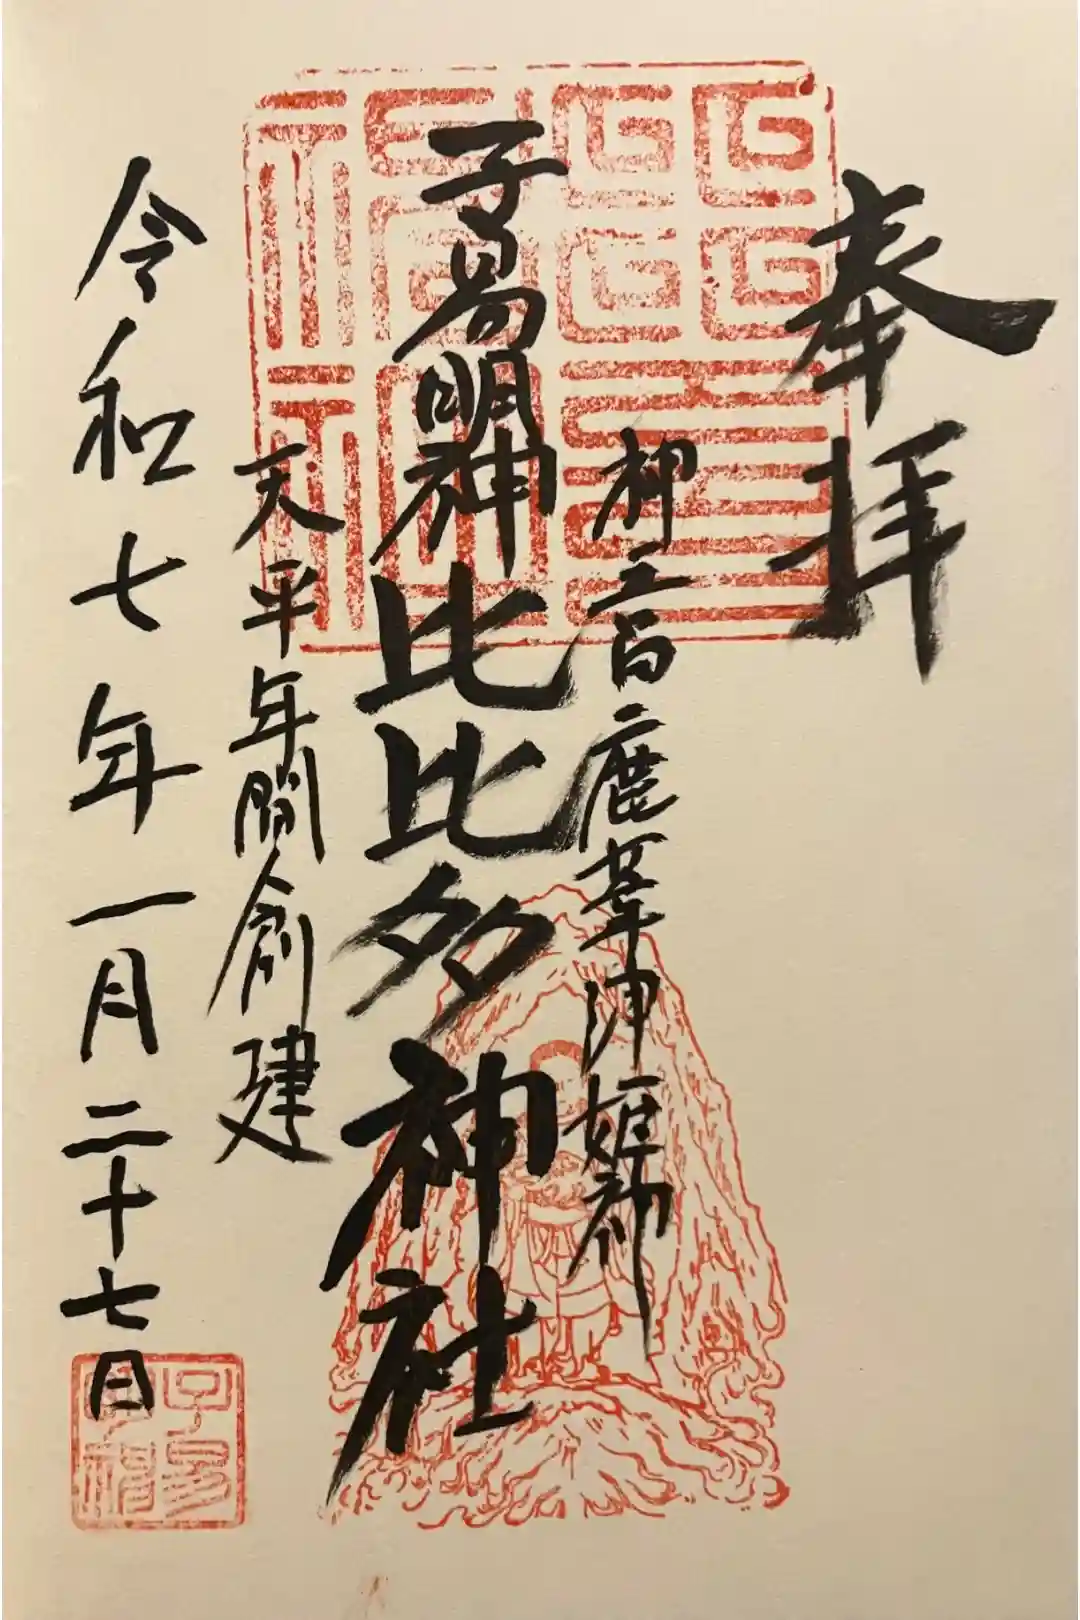 奉拝
神吾鹿葦津姫神
子易明神 比比多神社
天平年間創建
令和七年一月二十七日
子易明神